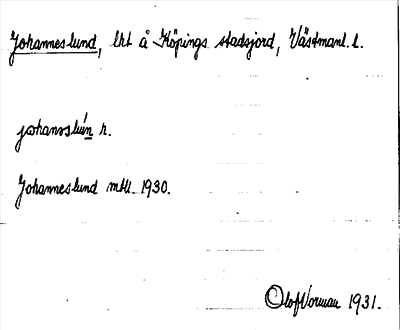 Johanneslund, lht å Köpings stadsjord, Västmanl. l.
johannslún r.
Johanneslund mtl. 1930.
Olof Norman 1931.